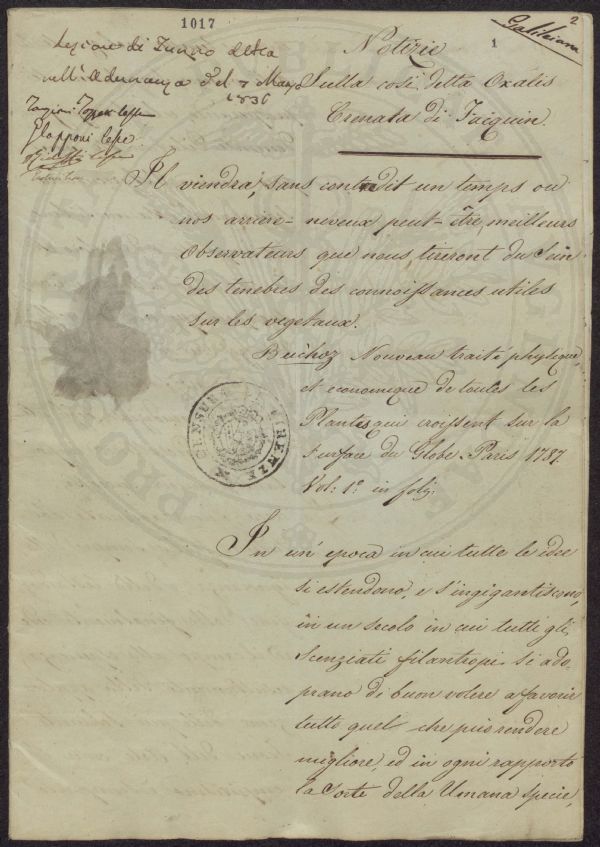 1017
2
Galileiana
1
Lezione di Turno detta
nell'Adunanza del 7 Marzo
1836
Notizie
Sulla così detta Oxalis
Crenata di Jacquin.
Il viendra, sans contredit un temps ou
nos arriere-neveux peut-être, meilleurs
Observateurs que nous, tireront du Sein
des tenebres des connoissances utiles
sur les vegetaux.
Buchoz Nouveau traité physique,
et economique de toutes les
Plantes qui croissent sur la
Surface du Globe. Paris 1787
Vol: 1º in folº:
CENSURA FIRENZE
In un'epoca in cui tutte le idee
si estendono, e s'ingigantiscono,
in un secolo in cui tutti gli
Scenziati filantropi si ado-
prano di buon volere a favorir
tutto quel che può rendere
migliore, ed in ogni rapporto
la Sorte della Umana Specie,